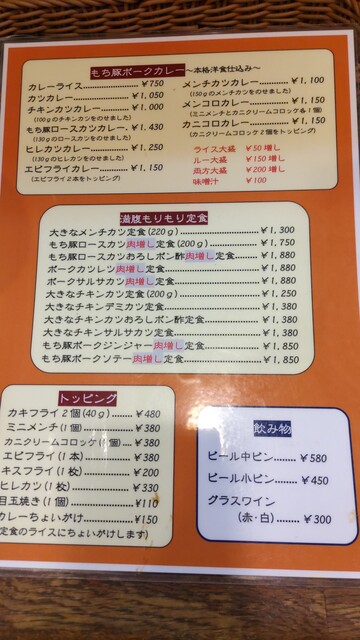 もち豚ポークカレー～本格洋食仕込み～
カレーライス……………￥750
カツカレー………………￥1,050
チキンカツカレー………￥1,000
(100gのチキンカツをのせました)
もち豚ロースカツカレー‥￥1,430
(130gのロースカツをのせました)
ヒレカツカレー…………￥1,250
(130gのヒレカツをのせました)
エビフライカレー………￥1,150
(エビフライ2本をトッピング)
メンチカツカレー………￥1,100
(150gのメンチカツをのせました)
メンコロカレー…………￥1,150
(ミニメンチとカニクリームコロッケ各1個)
カニコロカレー…………￥1,150
(カニクリームコロッケ2個をトッピング)
ライス大盛 ￥50増し
ルー大盛 ￥150増し
両方大盛 ￥200増し
味噌汁 ￥100
満腹もりもり定食
大きなメンチカツ定食(220g)……………￥1,300
もち豚ロースカツ肉増し定食(200g)……￥1,750
もち豚ロースカツおろしポン酢肉増し定食……￥1,880
ポークカツレツ肉増し定食……………￥1,880
ポークサルサカツ肉増し定食……………￥1,880
大きなチキンカツ定食(200g)……………￥1,250
大きなチキンデミカツ定食……………￥1,380
大きなチキンカツおろしポン酢定食……………￥1,380
大きなチキンサルサカツ定食……………￥1,380
もち豚ポークジンジャー肉増し定食……………￥1,850
もち豚ポークソテー肉増し定食……………￥1,850
トッピング
カキフライ2個(40g)………￥480
ミニメンチ(1個)…………￥380
カニクリームコロッケ(1個)…￥380
エビフライ(1本)…………￥380
キスフライ(1枚)…………￥200
ヒレカツ(1枚)……………￥330
目玉焼き(1個)……………￥110
カレーちょいがけ…………￥150
定食のライスにちょいがけします)
飲み物
ビール中ビン………￥580
ビール小ビン………￥450
グラスワイン
(赤・白)………￥300